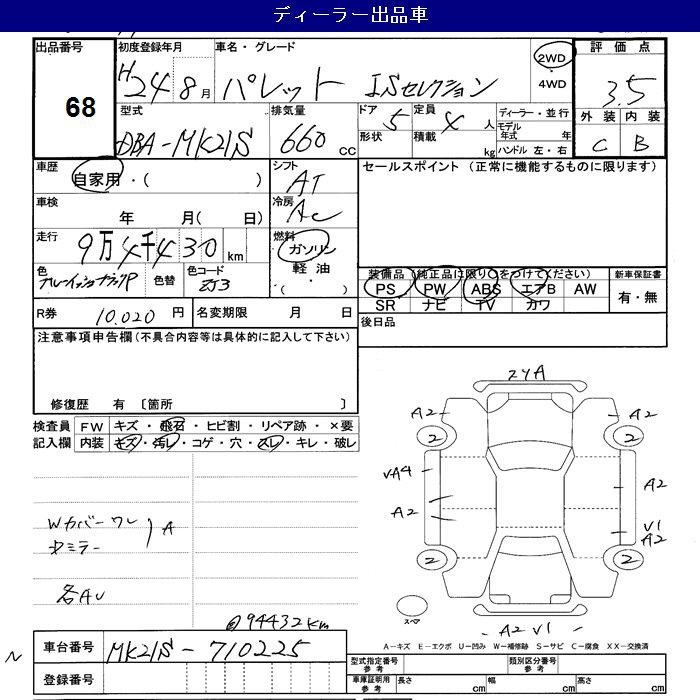 ディーラー出品車
出品番号 初度登録年月 車名・グレード 評価点
68
H24 8月 パレット ISセレクション 2WD 4WD 3.5
型式 排気量 ドア 定員 ディーラー・並行 外装 内装
DBA-MK21S 660 cc 5 4人 モデル年式 年 C B
形状 積載 kg ハンドル 左・右
車歴 シフト セールスポイント (正常に機能するものに限ります)
自家用・( ) AT
車検 冷房
年 月( 日) AC
走行 燃料
9万4千430km ガソリン
軽油
・( )
色 色替 色コード ZJ3
装備品 (純正品に限り○をつけてください) 新車保証書
PS PW ABS エアB AW 有・無
SR ナビ TV カワ
R券 10,020円 名変期限 月 日
後日品
注意事項申告欄 (不具合内容等は具体的に記入して下さい)
修復歴 有 〔箇所 〕
検査員 FW キズ・飛石・ヒビ割・リペア跡・×要
記入欄 内装 キズ・汚レ・コゲ・穴・スレ・キレ・破レ
ZYA
A2 A2
2 2
VA4 A2
A2 V1
A2
2 2
Wカバーワレ
ドミラー
A
各AU
@94432km
スペア
A2 V1
車台番号 MK21S-710225
登録番号
A-キズ E-エクボ U-凹み W-補修跡 S-サビ C-腐食 XX-交換済
型式指定番号 参考 類別区分番号 参考
車庫証明用 参考 長さ cm 幅 cm 高さ cm
N